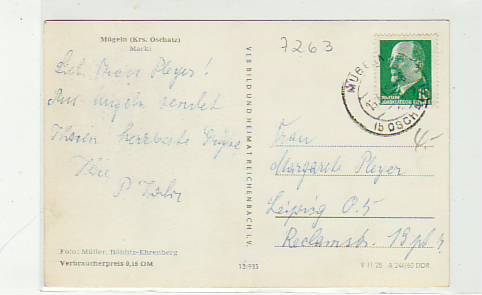 Mügeln (Krs. Oschatz)
Markt
7263
Frau Pleyer!
Aus Mügeln sendet
Ihnen herzliche Grüße
Ihre
P.
Foto: Müller, Böhlitz-Ehrenberg
Verbraucherpreis 0,15 DM
VEB BILD UND HEIMAT REICHENBACH I. V.
13/935
MÜGELN
(b OSCH
Frau
Margarete Pleyer
Leipzig O.5
Reclamstr. 19
V 11 28 A 24/60 DDR